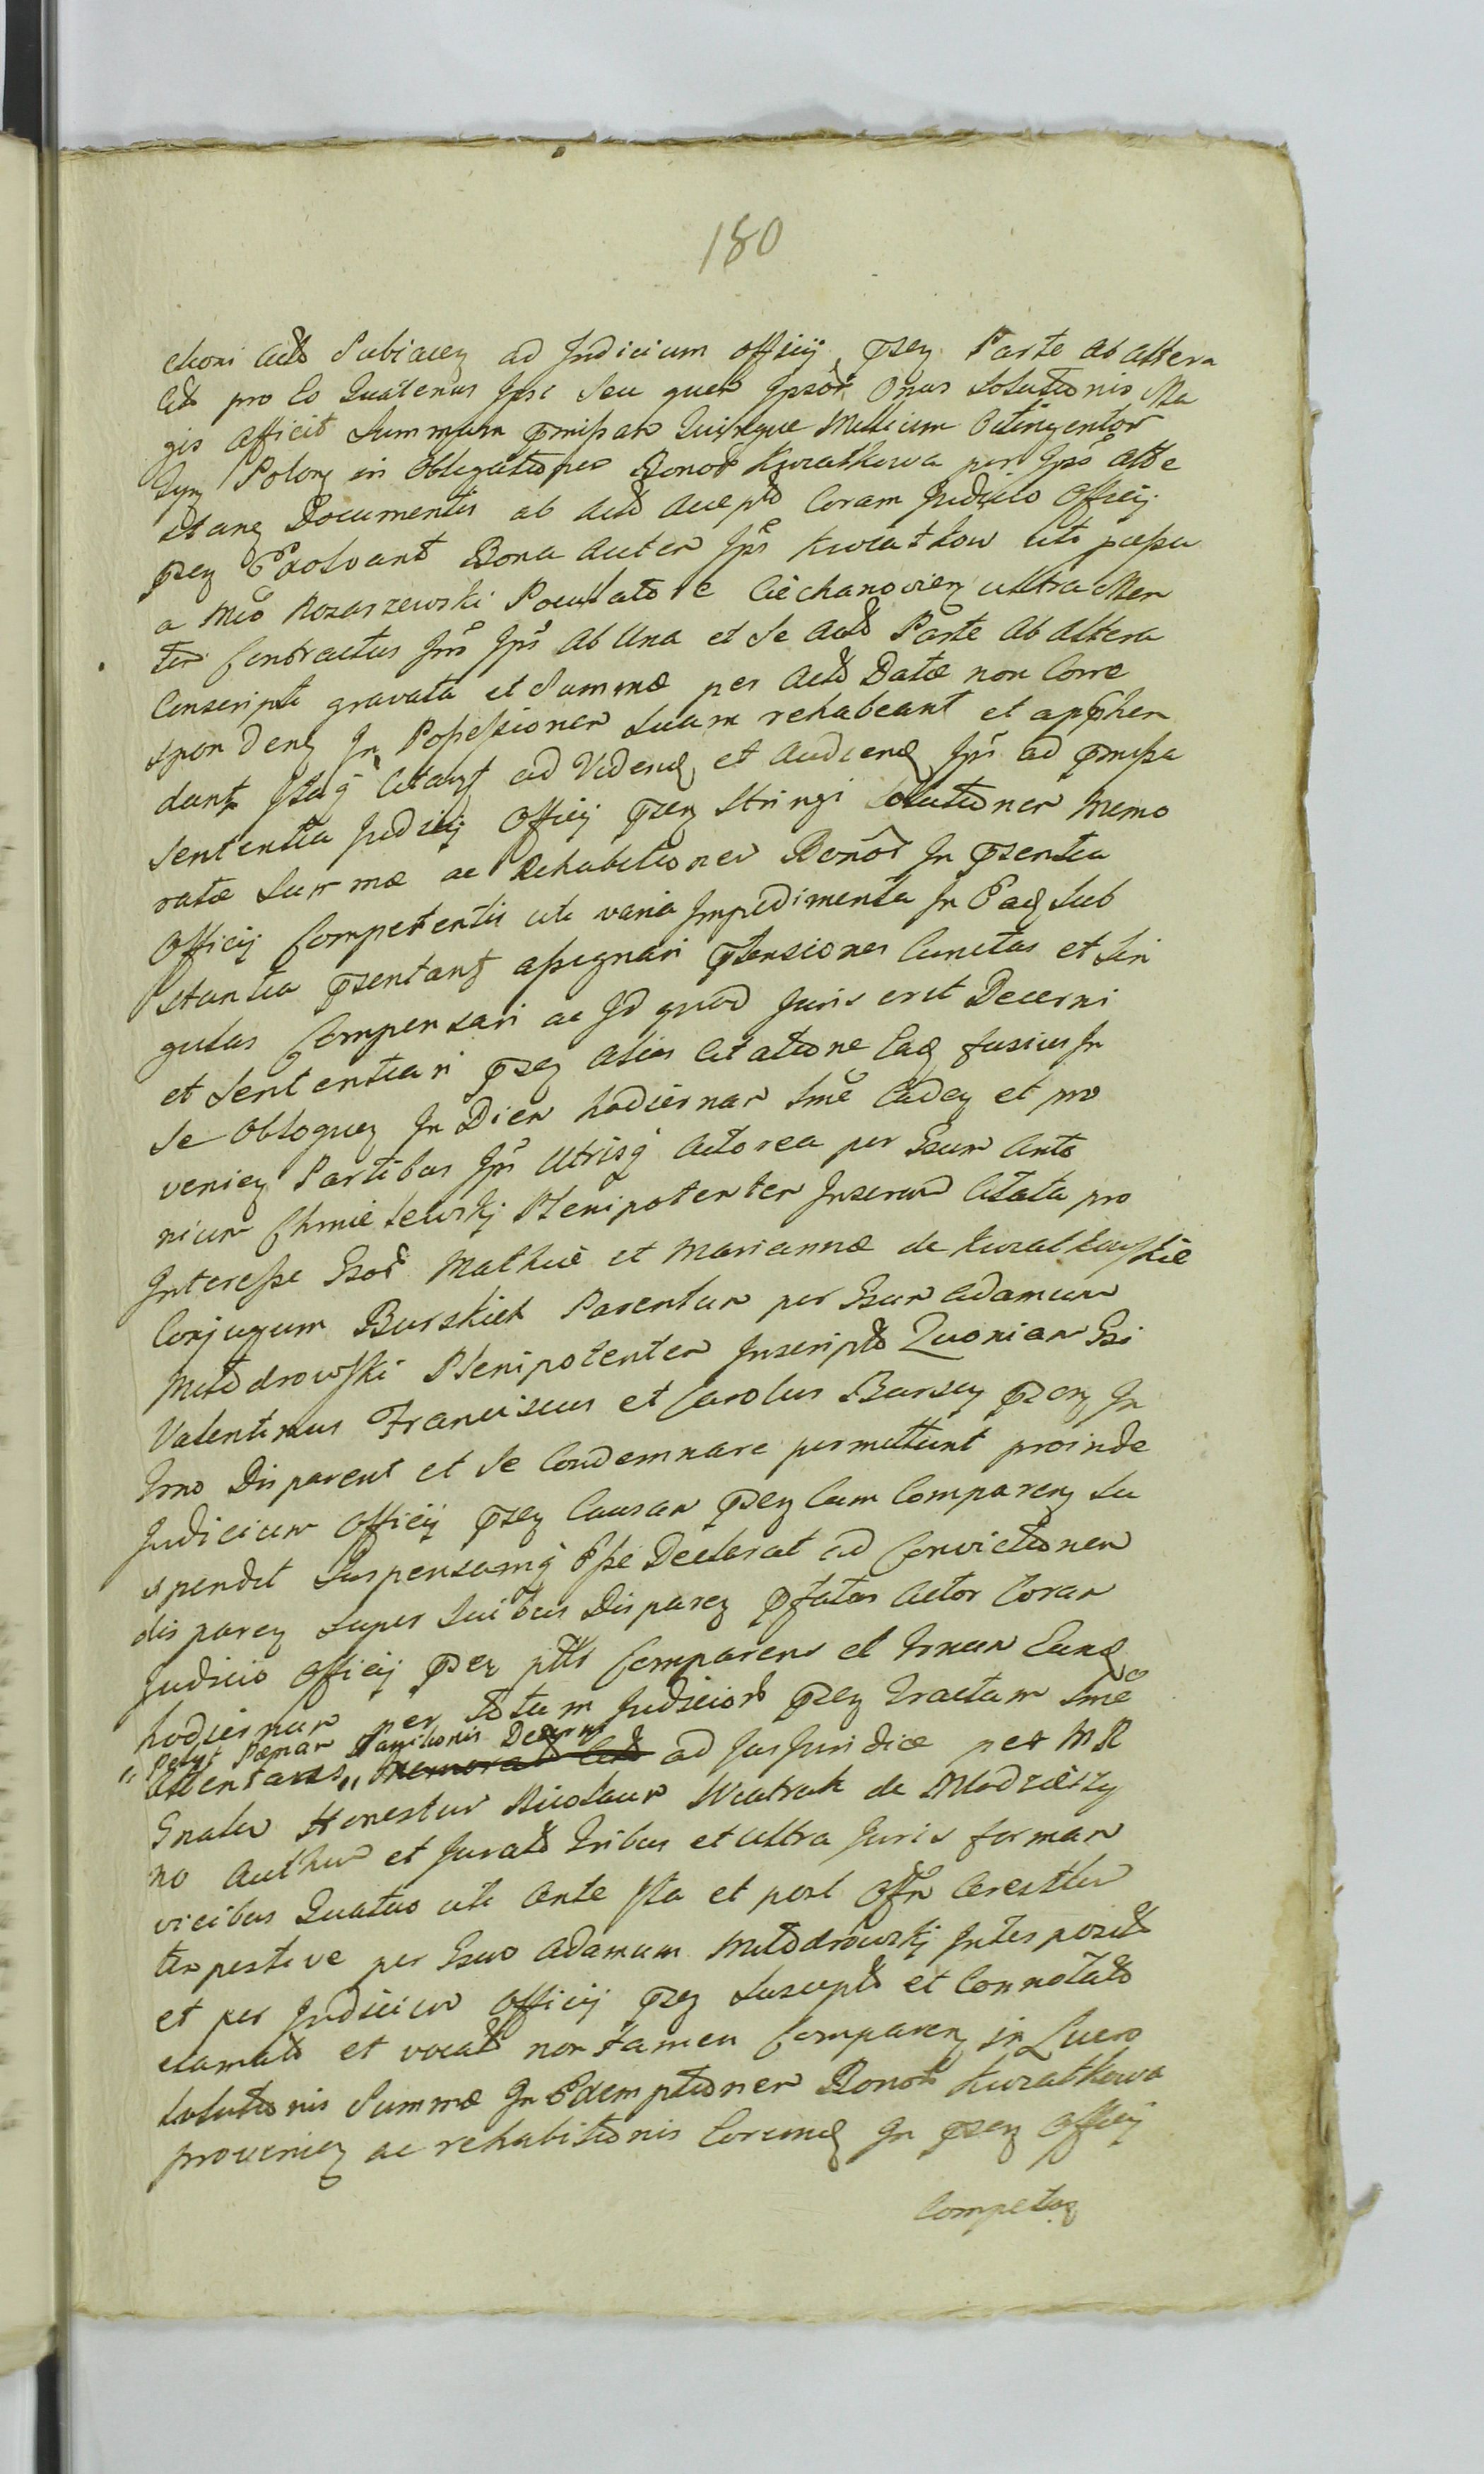 180
ctioni Actô Subiacen ad Judicium Officij Pñsen Parte ab Altera
Citô pro eo Quatenus Ipsi Seu quem Ipsor Onus Solutionis Ma
gis Afficit Summam Pmissam Quinque Millium Octingentor
Flor Polon in Obligationes Bonor Kwiatkowa per Ipsõ
Documentis ab Actô Accepto Coram Judicio Officij
Pñsen Exolvant Bona Autem Ipsi Kwiatkow uti passa
a Mfco Rozaszewski Ciechanovien ultra Men
tem Contractus Ab Una et Se Actô Parte Ab Altera
Conscripti gravata et Summæ per Actô Datæ non Corre
sponden In Possessionem Suam rehabeant et apphen
dant Itaq Citant ad Viden et Audien Ipsi ad Pmissa
Sententia Judicij Officij Pñsen Stringi Solutionem Memo
ratæ Summæ ac Rehabitionem Bonor In Pñsentia
Officij Competentis uti varia Impedimenta In Ead Sub
stantia Psentant assignari Ptensiones Cunctas et Sin
gulas Compensari ac Id quod Juris erit Decerni
et Sententiari Pñsen Alias Citatione Ead fusius In
Se Obloquen In Diem hodiernam Sme Caden et pro
venien Partibus Ipsi Utrisq Actorea per Gsum Anto
nium Chmielewskj Plenipotentem Inserend Citata pro
Interesse Gsor Mathiæ et Mariannæ de Kwiatkowskie
Conjugum Burskich Parentum per Gsum Adamum
Młodrowski Plenipotentem Inscripto Quoniam Gsi
Valentinus Franciscus et Carolus Burscy Pñsen In
Trno Disparent et Se Condemnare permittunt proinde
Judicium Officij Pñsen Causam Pñsen Cum Comparen Su
spendit Suspensamq Esse Declarat ad Convictionem
disparen Super Quibus Disparen Pfatus Actor Coram
Judicio Officij Psen pttr Comparens et Trnum Eund
hodiernum per totum Judicior Psen Tractum Sme
" Petyt Pænam Bannitionis Decerni
Attentans " Memorat Citô ad Jus Juridice per M R
Gnalem Honestum Nicolaum Wiatrak de Młodzieszy
no Authum et Juratô Tribus et ultra Juris formam
vicibus Quatuo uti Ante Ita et post Arestum
tempestive per Gsum Adamum Młodrowskj Interpositô
et per Judicium Officij Pñsen Suscepto et Connotatô
clamatô et vocatô non tamen Comparen in Lucro
Solutionis Summæ In Exemptionem Bonor Kwiatkowa
provenien ac rehabitionis Eorund In Psen Officij
Competen